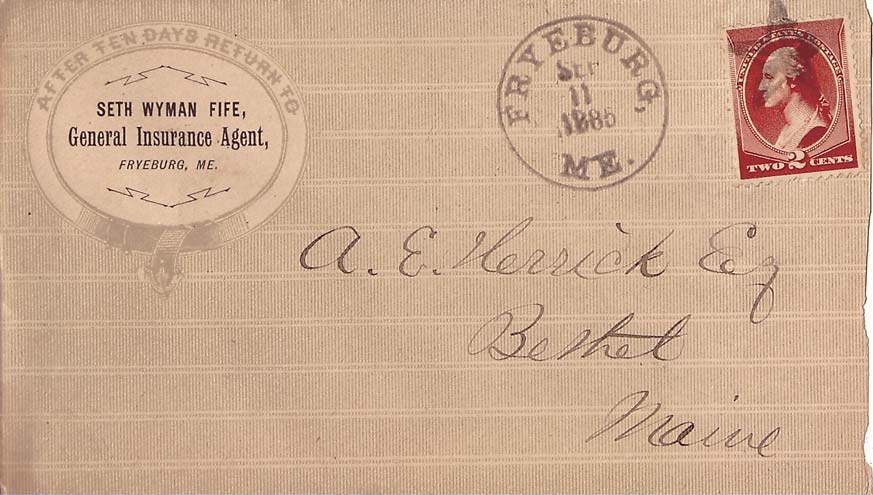 AFTER TEN DAYS RETURN TO
SETH WYMAN FIFE,
General Insurance Agent,
FRYEBURG, ME.
FRYEBURG,
SEP
11
1885
ME.
UNITED STATES POSTAGE
TWO 2 CENTS
A. E. Herrick Esq
Bethel
Maine